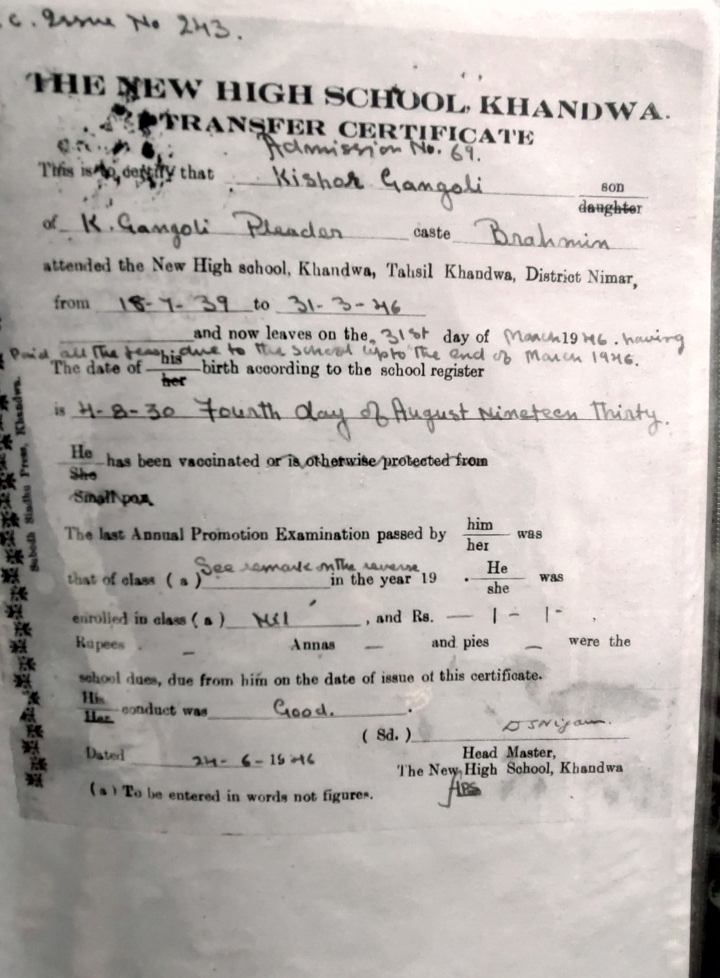 c. Issue No 243.
THE NEW HIGH SCHOOL, KHANDWA.
TRANSFER CERTIFICATE
Admission No. 69.
This is to certify that Kishor Gangoli son
daughter
of K. Gangoli Pleader caste Brahmin
attended the New High school, Khandwa, Tahsil Khandwa, District Nimar,
from 18-7-39 to 31-3-46
and now leaves on the 31st day of March 1946. having
Paid all the fees due to the School upto the end of March 1946.
The date of his birth according to the school register
her
is 4-8-30 Fourth day of August Nineteen Thirty.
He has been vaccinated or is otherwise protected from
She
Small pox
The last Annual Promotion Examination passed by him was
her
that of class (a) See remark on the reverse in the year 19 . He was
she
enrolled in class (a) Nil , and Rs. — | - | - ,
Rupees . — Annas — and pies — were the
school dues, due from him on the date of issue of this certificate.
His conduct was Good.
Her
(Sd.)
Dated 24-6-1946 Head Master,
The New High School, Khandwa
(a) To be entered in words not figures.
Subodh Sindhu Press, Khandwa.